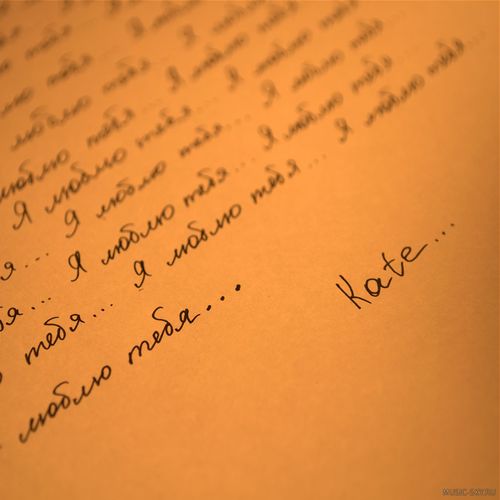 люблю тебя
люблю тебя Я люблю
люблю тебя Я люблю тебя
Я люблю тебя... Я люблю
я... Я люблю тебя... Я люблю тебя
я... Я люблю тебя... Я люблю тебя...
тебя... Я люблю тебя... Я люблю тебя...
люблю тебя...
Kate...
MUSIC-SKY.RU